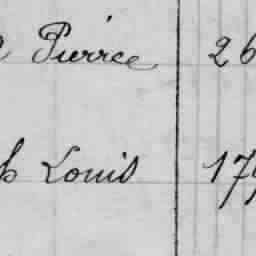 Pierre 26
Louis 17